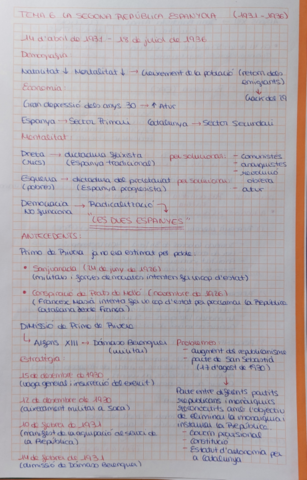 TEMA 6. LA SEGONA REPÚBLICA ESPANYOLA (1931-1936)
14 d'abril de 1931 - 18 de juliol de 1936
Demografia:
Natalitat ↓ Mortalitat ↓ → Creixement de la població (retorn dels emigrants)
Economia:
Gran depressió dels anys 30 → ↑ Atur
Espanya → Sector Primari Catalunya → Sector Secundari
Mentalitat:
Dreta → dictadura feixista per solucionar: - comunistes
(rics) (Espanya tradicional) - anarquistes
Esquerra → dictadura del proletariat per solucionar: - atur
(pobres) (Espanya progresista)
Democràcia → Radicalització
no funciona
"LES DUES ESPANYES"
ANTECEDENTS:
Primo de Rivera ja no era estimat pel poble
• Sanjuanada (24 de juny de 1926)
(militars i intenten fer un cop d'estat)
• Conspiració de Prats de Molló (novembre de 1926)
(Francesc Macià intenta fer un cop d'estat per proclamar la República
Catalana desde França)
DIMISSIÓ de Primo de Rivera
↳ Alfons XIII → Dámaso Berenguer
(militar)
Problemes:
- augment del republicanisme
- pacte de San Sebastià
(17 d'agost de 1930)
Pacte entre diferents partits
republicans i monàrquics
regeneradors amb l'objectiu
de eliminar la monarquia i
instaurar la República.
- govern provisional
- constitució
- Estatut d'autonomia per
a Catalunya
Estratègia
15 de desembre de 1930
(vaga general i insurrecció del exèrcit)
12 de desembre de 1930
(aixecament militar a Jaca)
10 de febrer de 1931
la República)
14 de febrer de 1931
(dimissió de Dámaso Berenguer)